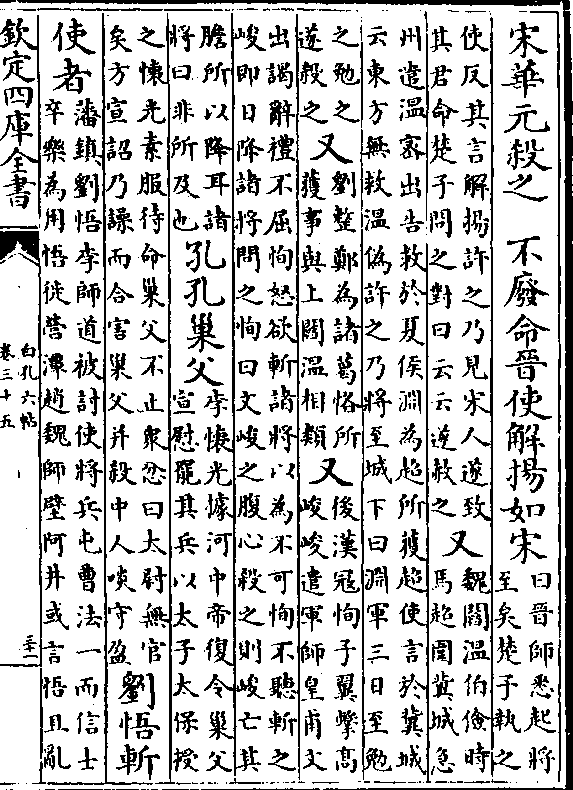 宋華元殺之　不廢命晉使解揚如宋曰晉師悉起將至矣楚子執之
使反其言解揚許之乃見宋人遂致其君命楚子問之對曰云云遂赦之又魏閻溫伯儉時馬超圍冀城急
州遣溫密出告救於夏侯淵為超所獲超使言於冀城云東方無救溫偽許之乃將至城下曰淵軍三日至勉
之勉之遂殺之又劉整鄭為諸葛恪所獲事與上閻溫相類又後漢寇恂子翼擊高峻峻遣軍師皇甫文
出謁辭禮不屈恂怒欲斬諸將以為不可恂不聽斬之峻即日降諸將問之恂曰文峻之腹心殺之則峻亡其
膽所以降耳諸將曰非所及也孔孔巢父李懷光據河中帝復令巢父宣慰罷其兵以太子太保授
之懷光素服待命巢父不止衆忿曰太尉無官矣方宣詔乃譟而合害巢父并殺中人啖守盈劉悟斬
使者藩鎮劉悟李師道被討使將兵屯曹法一而信士卒樂為用悟徙營潭趙魏師壁阿井或言悟且亂
欽定四庫全書
白孔六帖
卷三十五
三十一